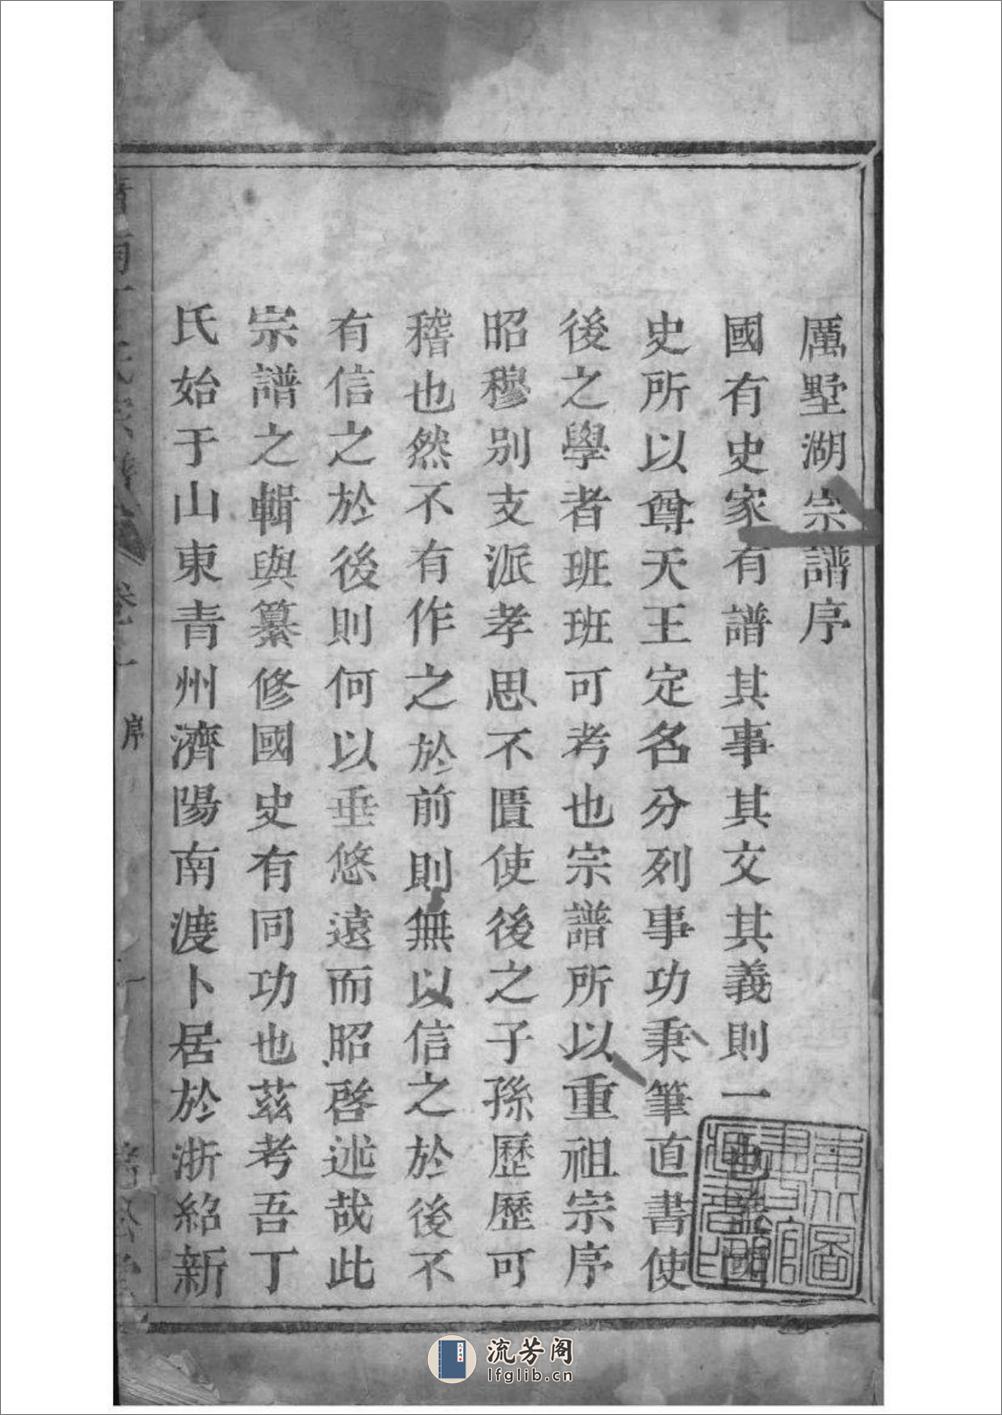 厲墅湖宗譜序
國有史家有譜其事其文其義則一也蓋國
史所以尊天王定名分列事功秉筆直書使
後之學者班班可考也宗譜所以重祖宗序
昭穆別支派孝思不匱使後之子孫歷歷可
稽也然不有作之於前則無以信之於後不
有信之於後則何以垂悠遠而昭啓述哉此
宗譜之輯與纂修國史有同功也茲考吾丁
氏始于山東青州濟陽南渡卜居於浙紹新
序
流芳阁
lfglib.cn